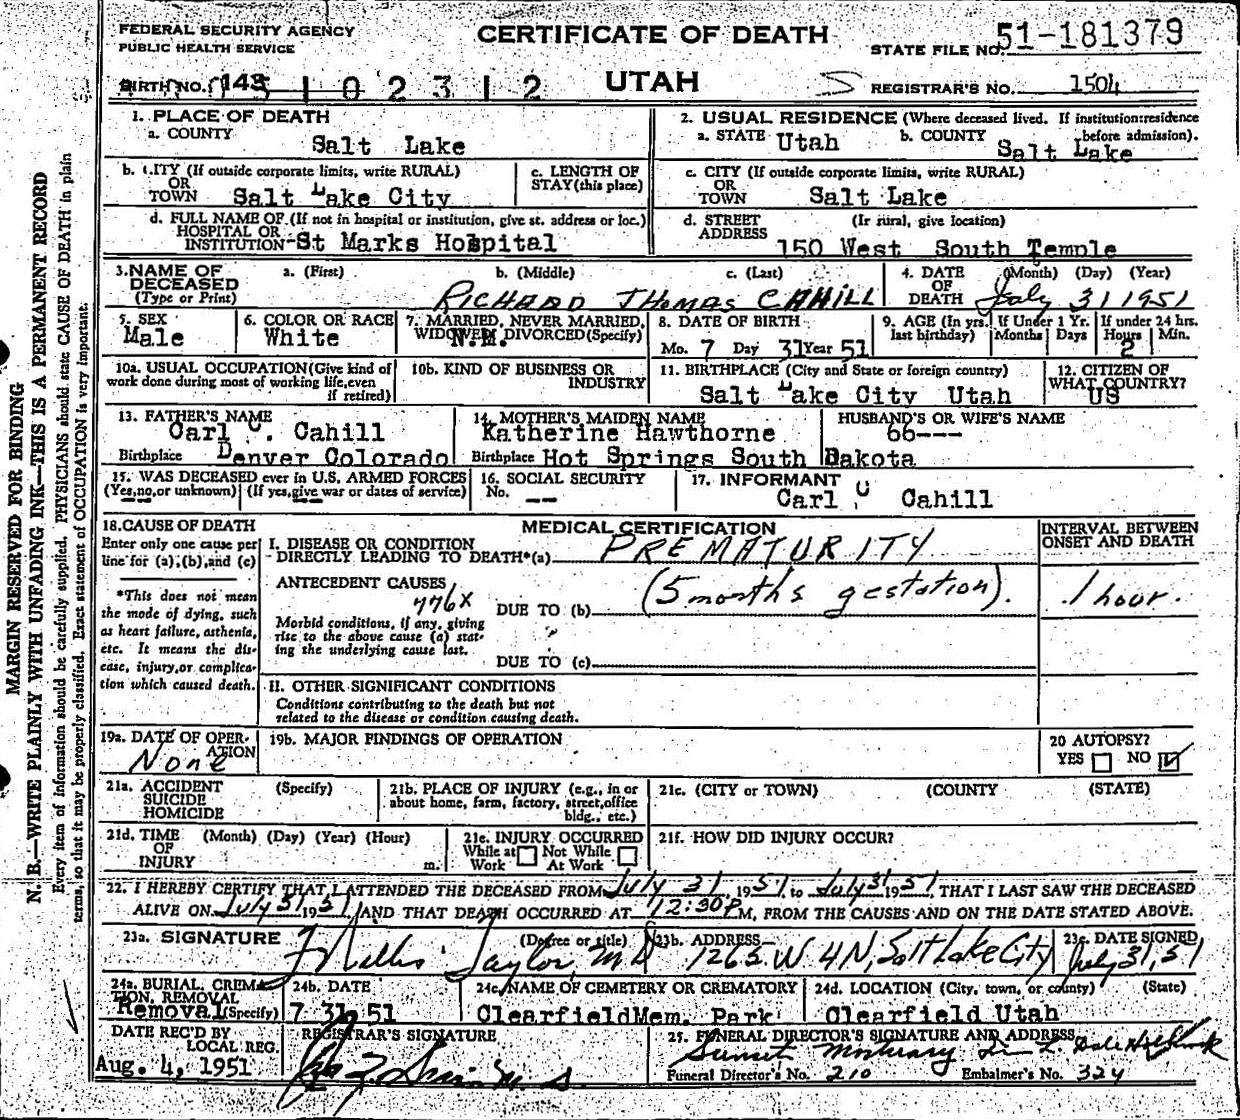 FEDERAL SECURITY AGENCY
PUBLIC HEALTH SERVICE
CERTIFICATE OF DEATH
UTAH
STATE FILE NO. 51-181379
BIRTH NO. 143 5 1 0 2 3 1 2
REGISTRAR'S NO. 1504
1. PLACE OF DEATH
a. COUNTY Salt Lake
2. USUAL RESIDENCE (Where deceased lived. If institution:residence before admission).
a. STATE Utah b. COUNTY Salt Lake
b. CITY (If outside corporate limits, write RURAL) OR TOWN Salt Lake City
c. LENGTH OF STAY (this place)
c. CITY (If outside corporate limits, write RURAL) OR TOWN Salt Lake
d. FULL NAME OF (If not in hospital or institution, give st. address or loc.) HOSPITAL OR INSTITUTION St Marks Hospital
d. STREET ADDRESS (If rural, give location) 150 West South Temple
3. NAME OF DECEASED (Type or Print)
a. (First) b. (Middle) c. (Last)
RICHARD THOMAS CAHILL
4. DATE OF DEATH (Month) (Day) (Year)
July 31 1951
5. SEX Male
6. COLOR OR RACE White
7. MARRIED, NEVER MARRIED, WIDOWED, DIVORCED (Specify) N.M.
8. DATE OF BIRTH Mo. 7 Day 31 Year 51
9. AGE (In yrs. last birthday) If Under 1 Yr. Months Days If under 24 hrs. Hours 2 Min.
10a. USUAL OCCUPATION (Give kind of work done during most of working life, even if retired)
10b. KIND OF BUSINESS OR INDUSTRY
11. BIRTHPLACE (City and State or foreign country) Salt Lake City Utah
12. CITIZEN OF WHAT COUNTRY? US
13. FATHER'S NAME Carl C. Cahill
Birthplace Denver Colorado
14. MOTHER'S MAIDEN NAME Katherine Hawthorne
Birthplace Hot Springs South Dakota
HUSBAND'S OR WIFE'S NAME
66---
15. WAS DECEASED ever in U.S. ARMED FORCES
(Yes, no, or unknown) (If yes, give war or dates of service)
16. SOCIAL SECURITY No. --
17. INFORMANT Carl C Cahill
18. CAUSE OF DEATH
Enter only one cause per line for (a), (b), and (c)
*This does not mean the mode of dying, such as heart failure, asthenia, etc. It means the disease, injury, or complication which caused death.
MEDICAL CERTIFICATION
INTERVAL BETWEEN ONSET AND DEATH
I. DISEASE OR CONDITION DIRECTLY LEADING TO DEATH*(a) PREMATURITY
ANTECEDENT CAUSES 776X
DUE TO (b) (5 months gestation). 1 hour.
Morbid conditions, if any, giving rise to the above cause (a) stating the underlying cause last.
DUE TO (c)
II. OTHER SIGNIFICANT CONDITIONS
Conditions contributing to the death but not related to the disease or condition causing death.
19a. DATE OF OPERATION None
19b. MAJOR FINDINGS OF OPERATION
20 AUTOPSY? YES NO
21a. ACCIDENT SUICIDE HOMICIDE (Specify)
21b. PLACE OF INJURY (e.g., in or about home, farm, factory, street, office bldg., etc.)
21c. (CITY or TOWN) (COUNTY (STATE)
21d. TIME OF INJURY (Month) (Day) (Year) (Hour) m.
21e. INJURY OCCURRED While at Work Not While At Work
21f. HOW DID INJURY OCCUR?
22. I HEREBY CERTIFY THAT I ATTENDED THE DECEASED FROM July 31, 1951, to July 31 1951, THAT I LAST SAW THE DECEASED
ALIVE ON July 31 1951, AND THAT DEATH OCCURRED AT 12:30 P M, FROM THE CAUSES AND ON THE DATE STATED ABOVE.
23a. SIGNATURE (Degree or title) Taylor, MD
23b. ADDRESS 1265 W 4 N, Salt Lake City
23c. DATE SIGNED July 31, 51
24a. BURIAL, CREMATION, REMOVAL (Specify) Removal
24b. DATE 7 31 51
24c. NAME OF CEMETERY OR CREMATORY Clearfield Mem. Park
24d. LOCATION (City, town, or county) (State) Clearfield Utah
DATE REC'D BY LOCAL REG. Aug. 4, 1951
REGISTRAR'S SIGNATURE
25. FUNERAL DIRECTOR'S SIGNATURE AND ADDRESS
Sunset Mortuary
Funeral Director's No. 210 Embalmer's No. 324
MARGIN RESERVED FOR BINDING
N. B.—WRITE PLAINLY WITH UNFADING INK—THIS IS A PERMANENT RECORD
Every item of information should be carefully supplied. PHYSICIANS should state CAUSE OF DEATH in plain
terms, so that it may be properly classified. Exact statement of OCCUPATION is very important.